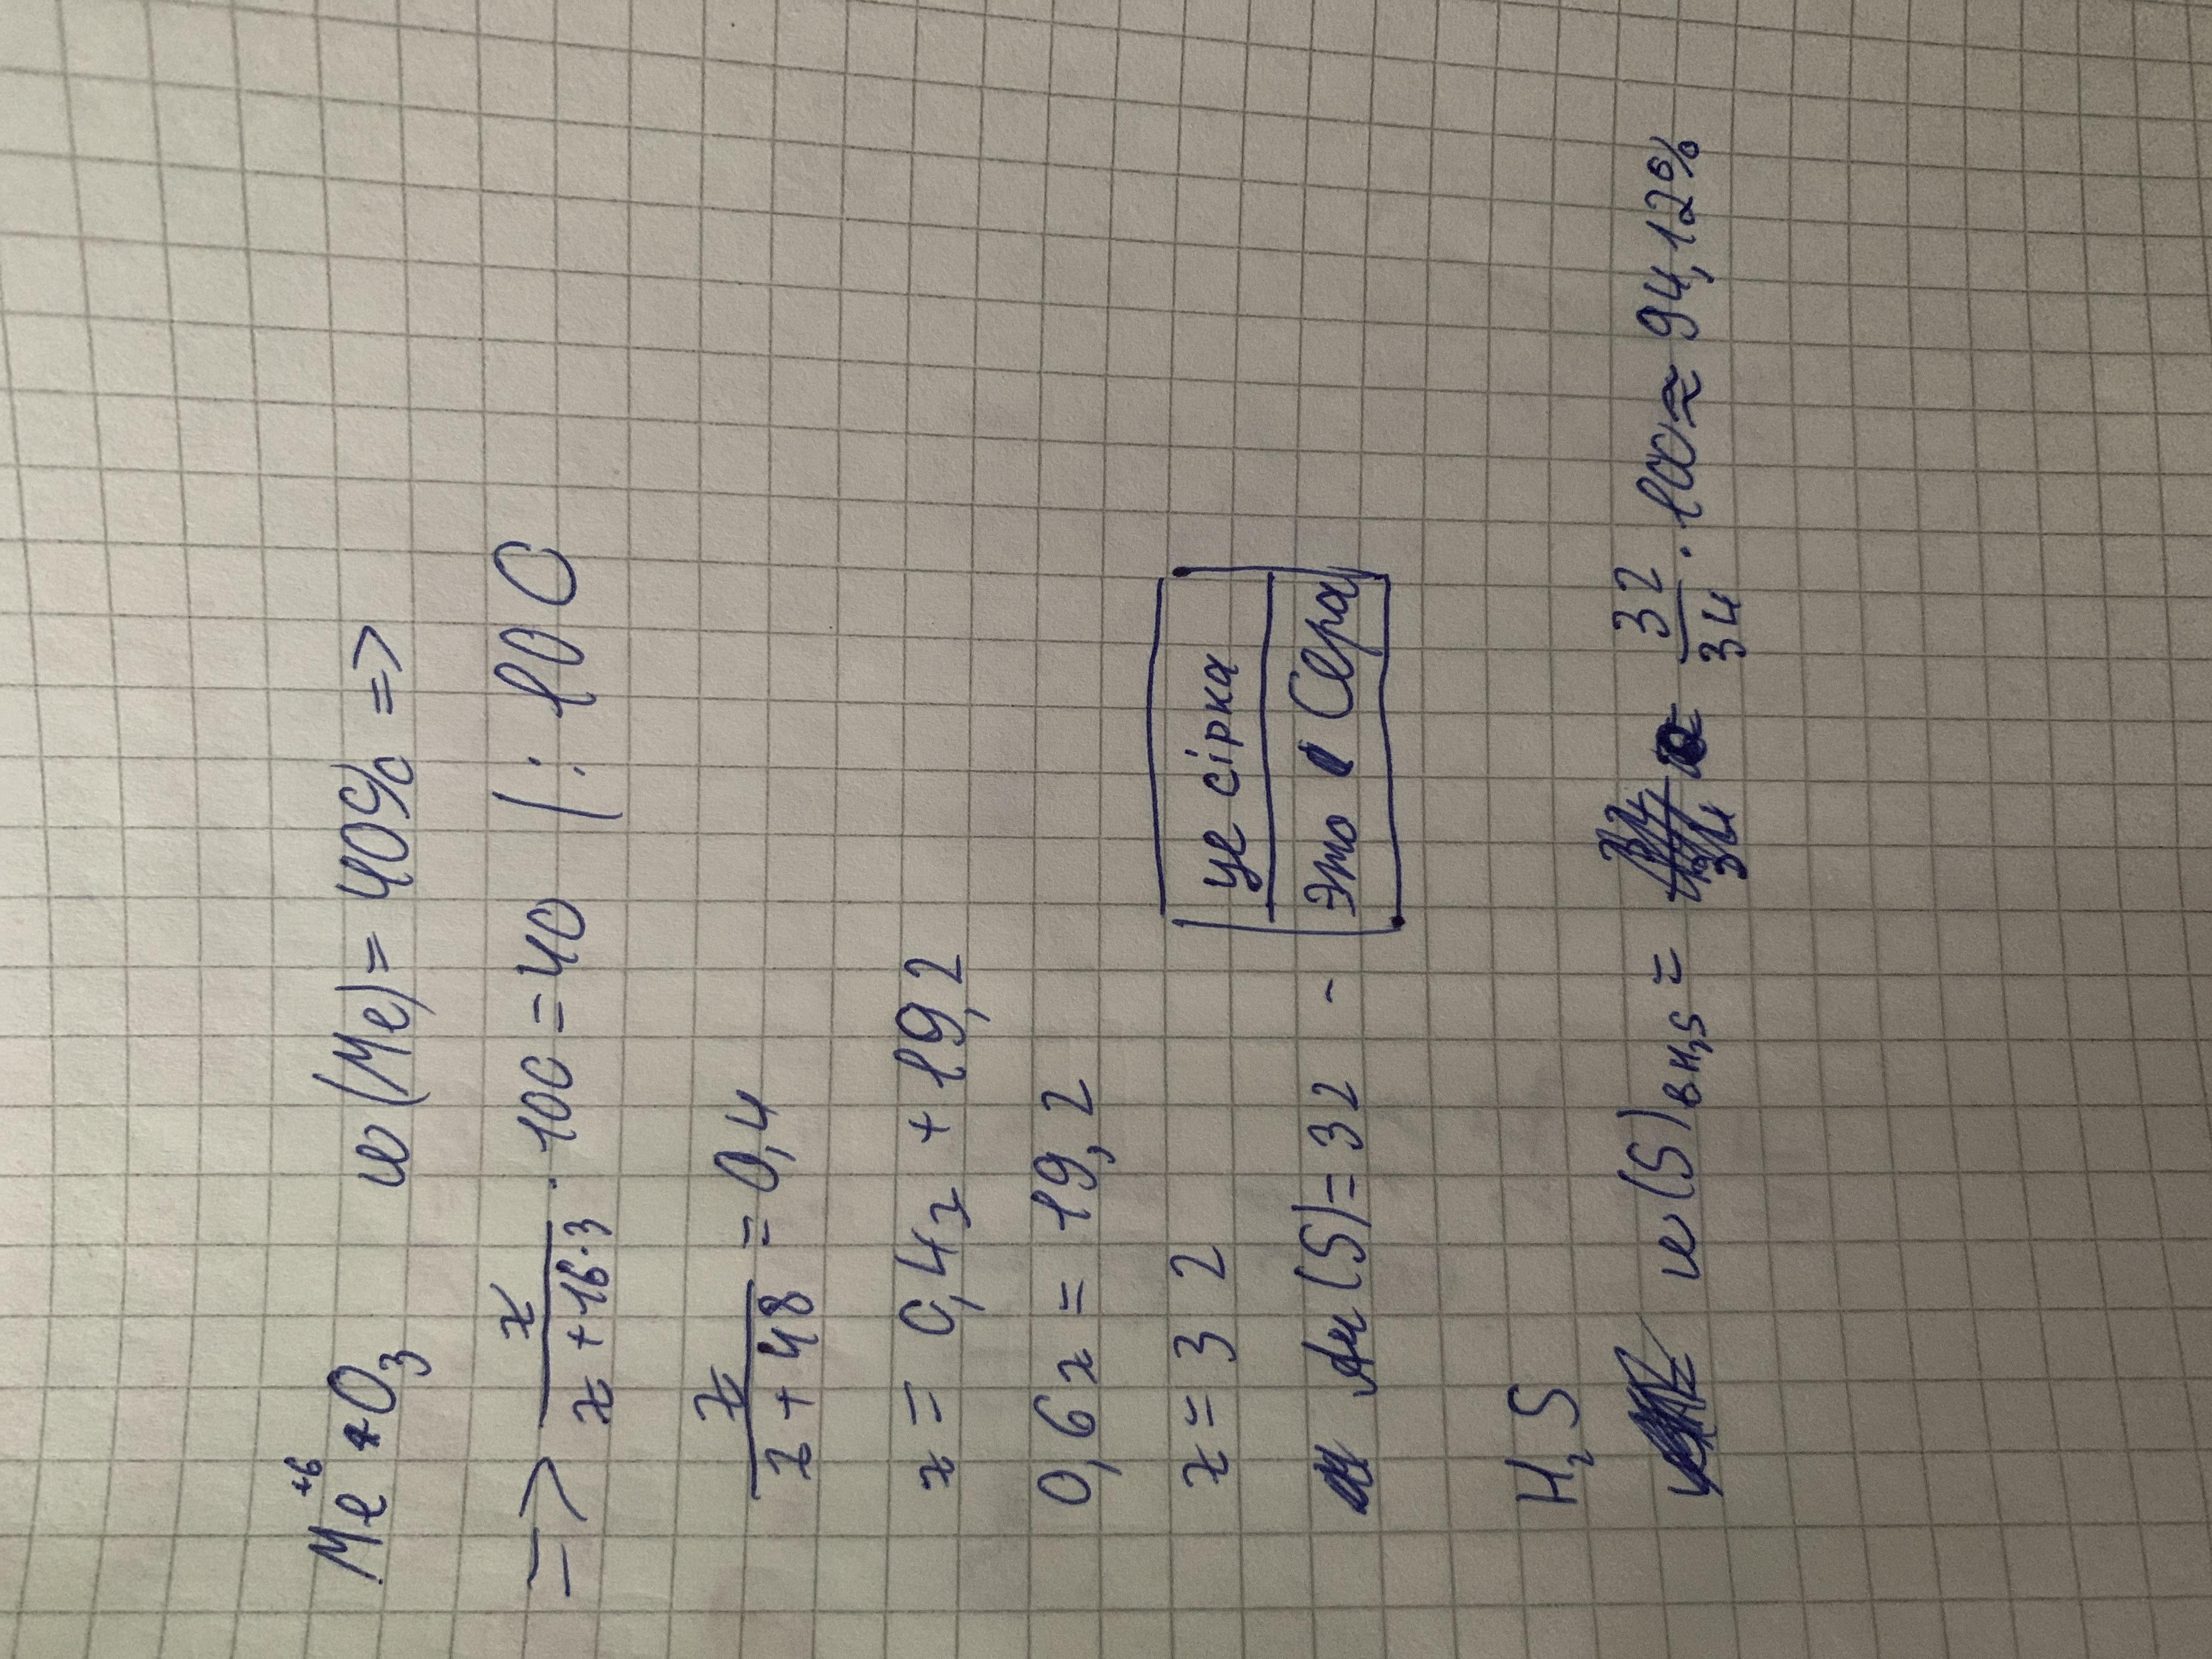 Me⁺⁶O₃ w(Me) = 40% =>
=> x/(x + 16·3) · 100 = 40 | : 100
x/(x + 48) = 0,4
x = 0,4x + 19,2
0,6x = 19,2
x = 32
це сірка
Ar(S) = 32 - это Сера
H₂S
w(S) в H₂S = 32/34 · 100 ≈ 94,12%